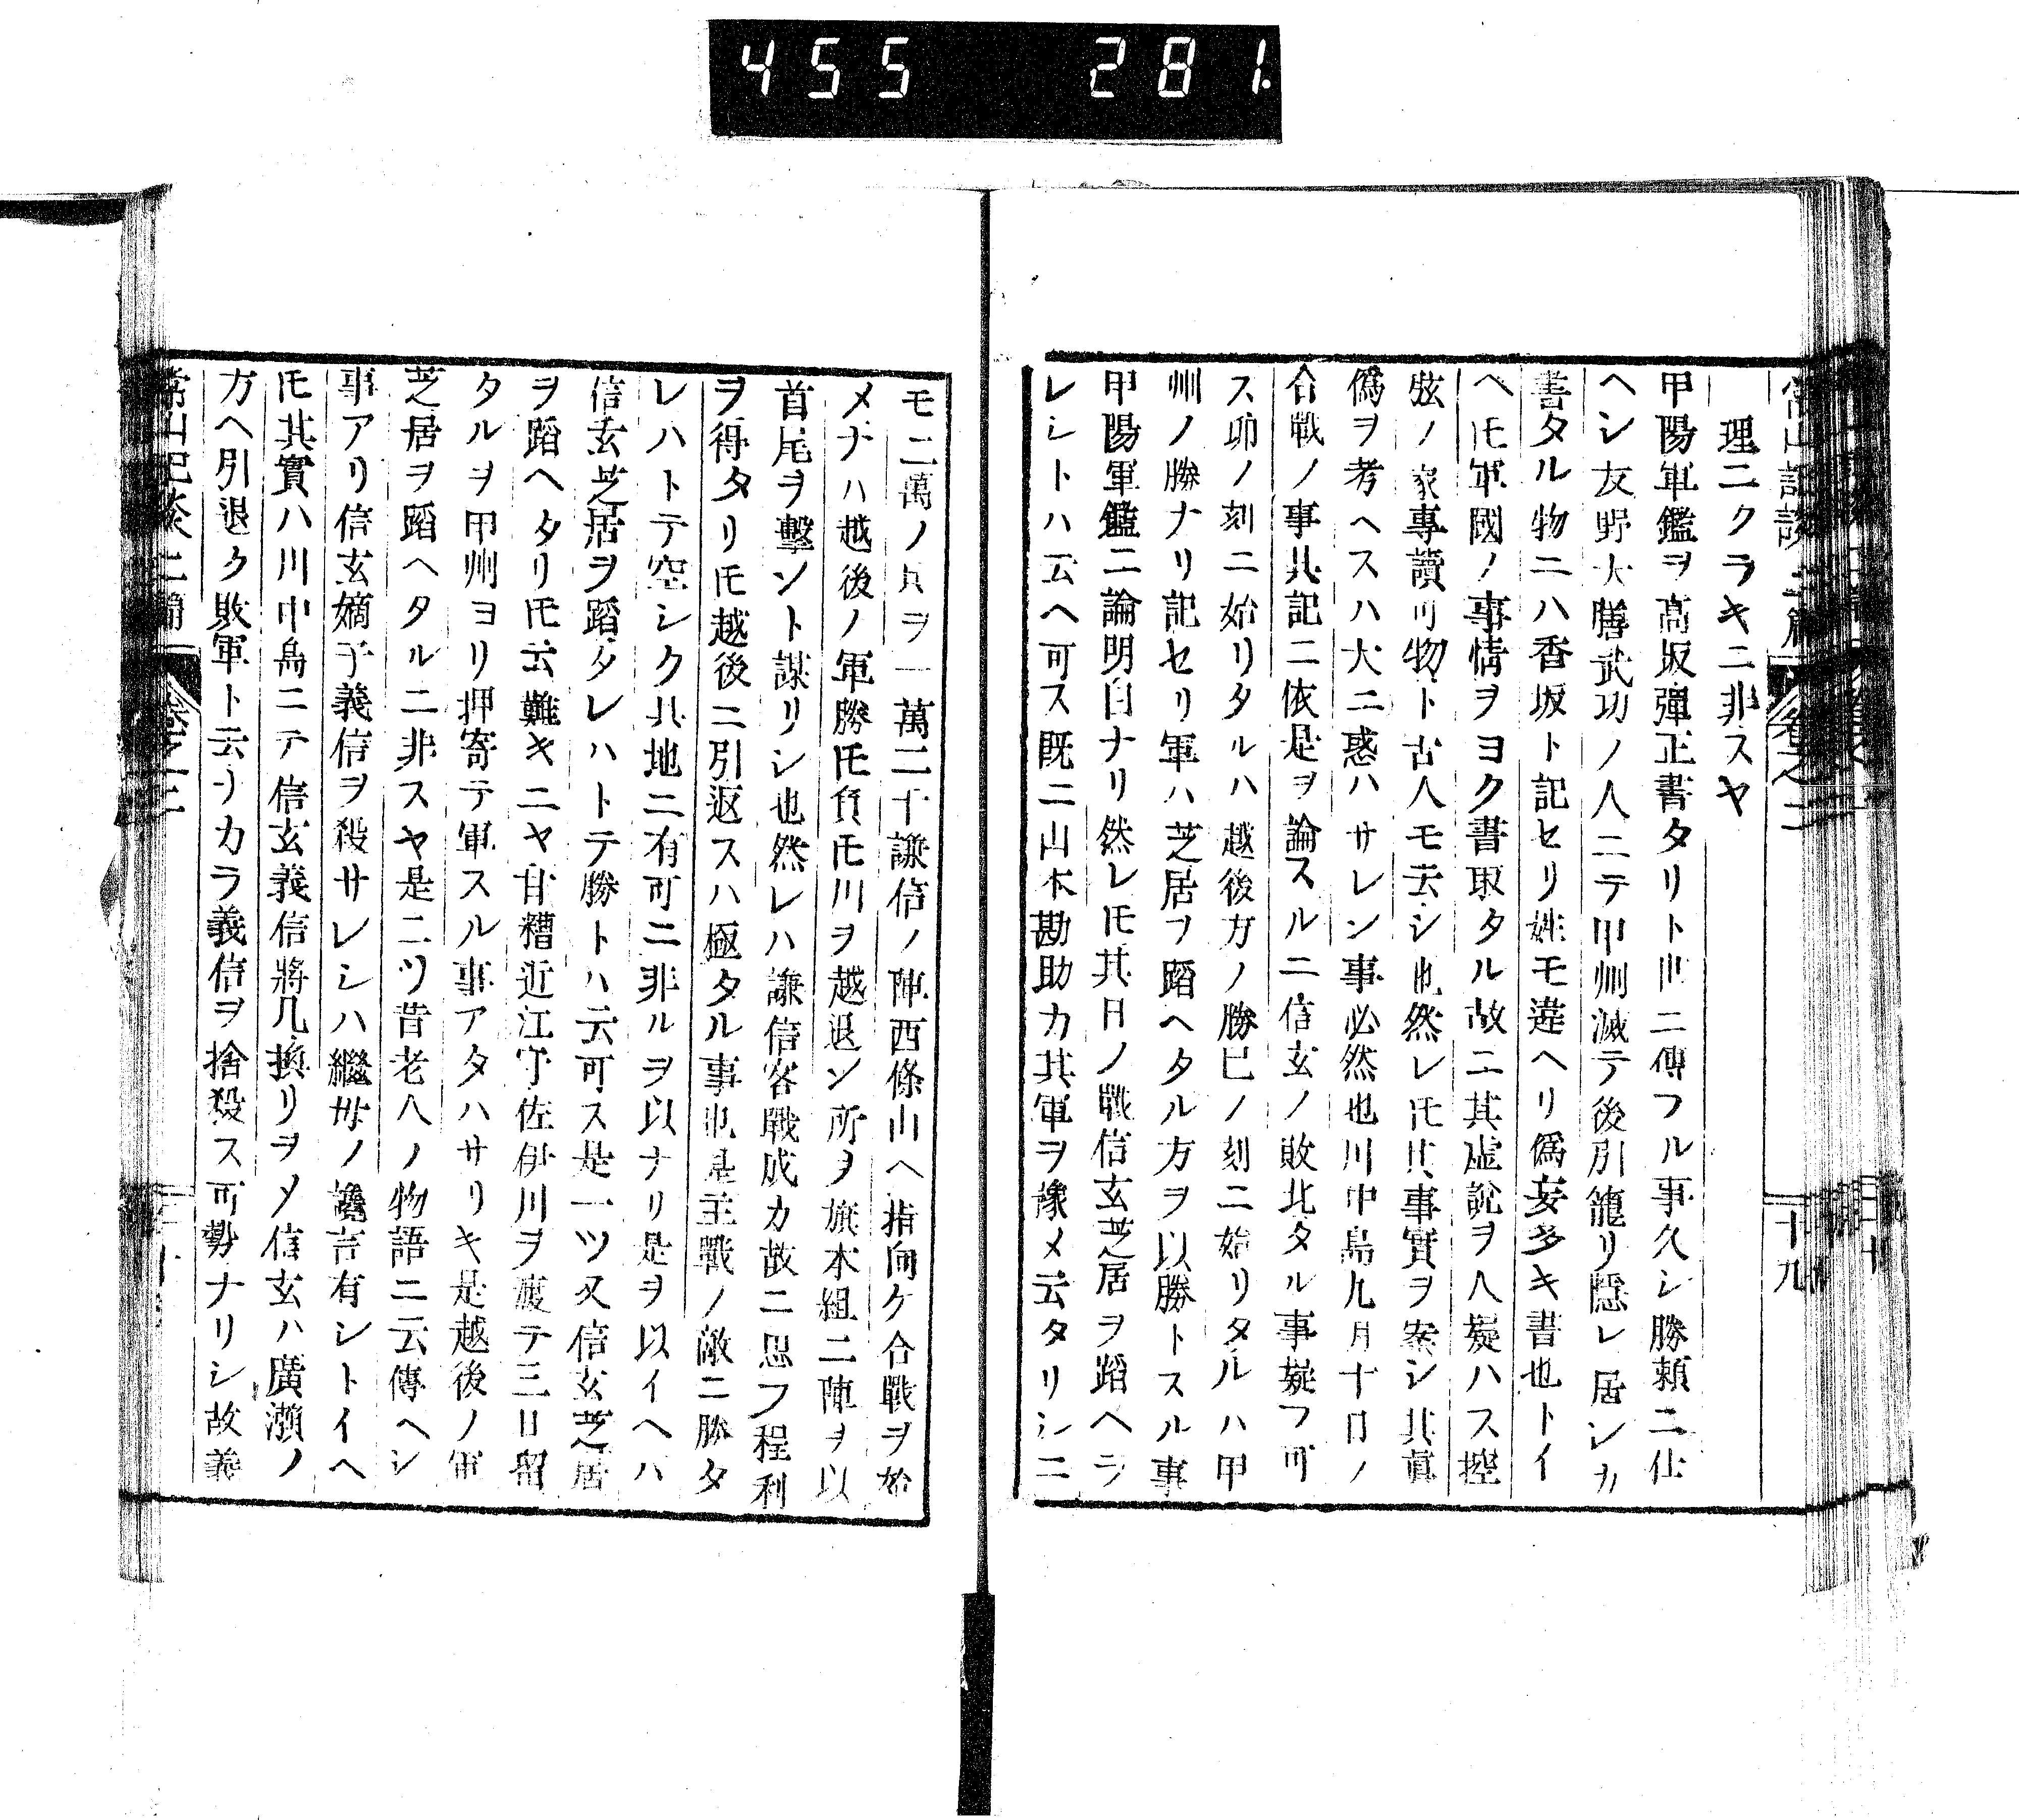 455 281
理ニクラキニ非スヤ
甲陽軍鑑ヲ高坂彈正書タリト世ニ傳フル事久シ勝頼ニ仕
ヘシ友野大膳武功ノ人ニテ甲州滅テ後引籠リ隱レ居シカ
書タル物ニハ香坂ト記セリ姓モ違ヘリ僞妄多キ書也トイ
ヘ𪜈軍國ノ事情ヲヨク書取タル故ニ其虚説ヲ人疑ハス控
弦ノ家專讀可物ト古人モ云シ也然レ𪜈其事實ヲ案シ其眞
僞ヲ考ヘスハ大ニ惑ハサレン事必然也川中島九月十日ノ
合戰ノ事其記ニ依是ヲ論スルニ信玄ノ敗北タル事疑フ可
ス卯ノ刻ニ始リタルハ越後方ノ勝巳ノ刻ニ始リタルハ甲
州ノ勝ナリ記セリ軍ハ芝居ヲ蹈ヘタル方ヲ以勝トスル事
甲陽軍鑑ニ論明白ナリ然レ𪜈其日ノ戰信玄芝居ヲ蹈ヘラ
レシトハ云ヘ可ス既ニ山本勘助カ其軍ヲ豫メ云タリシニ
モ二萬ノ兵ヲ一萬二千謙信ノ陣西條山ヘ指向ケ合戰ヲ始
メナハ越後ノ軍勝𪜈負𪜈川ヲ越退ン所ヲ旗本組二陣ヲ以
首尾ヲ擊ント謀リシ也然レハ謙信客戰成カ故ニ思フ程利
ヲ得タリ𪜈越後ニ引返スハ極タル事也是主戰ノ敵ニ勝タ
レハトテ空シク其地ニ有可ニ非ルヲ以ナリ是ヲ以イヘハ
信玄芝居ヲ蹈タレハトテ勝トハ云可ス是一ツ又信玄芝居
ヲ蹈ヘタリ𪜈云難キニヤ甘糟近江守佐伊川ヲ渡テ三日留
タルヲ甲州ヨリ押寄テ軍スル事アタハサリキ是越後ノ軍
芝居ヲ蹈ヘタルニ非スヤ是二ツ昔老人ノ物語ニ云傳ヘシ
事アリ信玄嫡子義信ヲ殺サレシハ繼母ノ讒言有シトイヘ
𪜈其實ハ川中島ニテ信玄義信將几換リヲメ信玄ハ廣瀬ノ
方ヘ引退ク敗軍ト云ナカラ義信ヲ捨殺ス可勢ナリシ故義